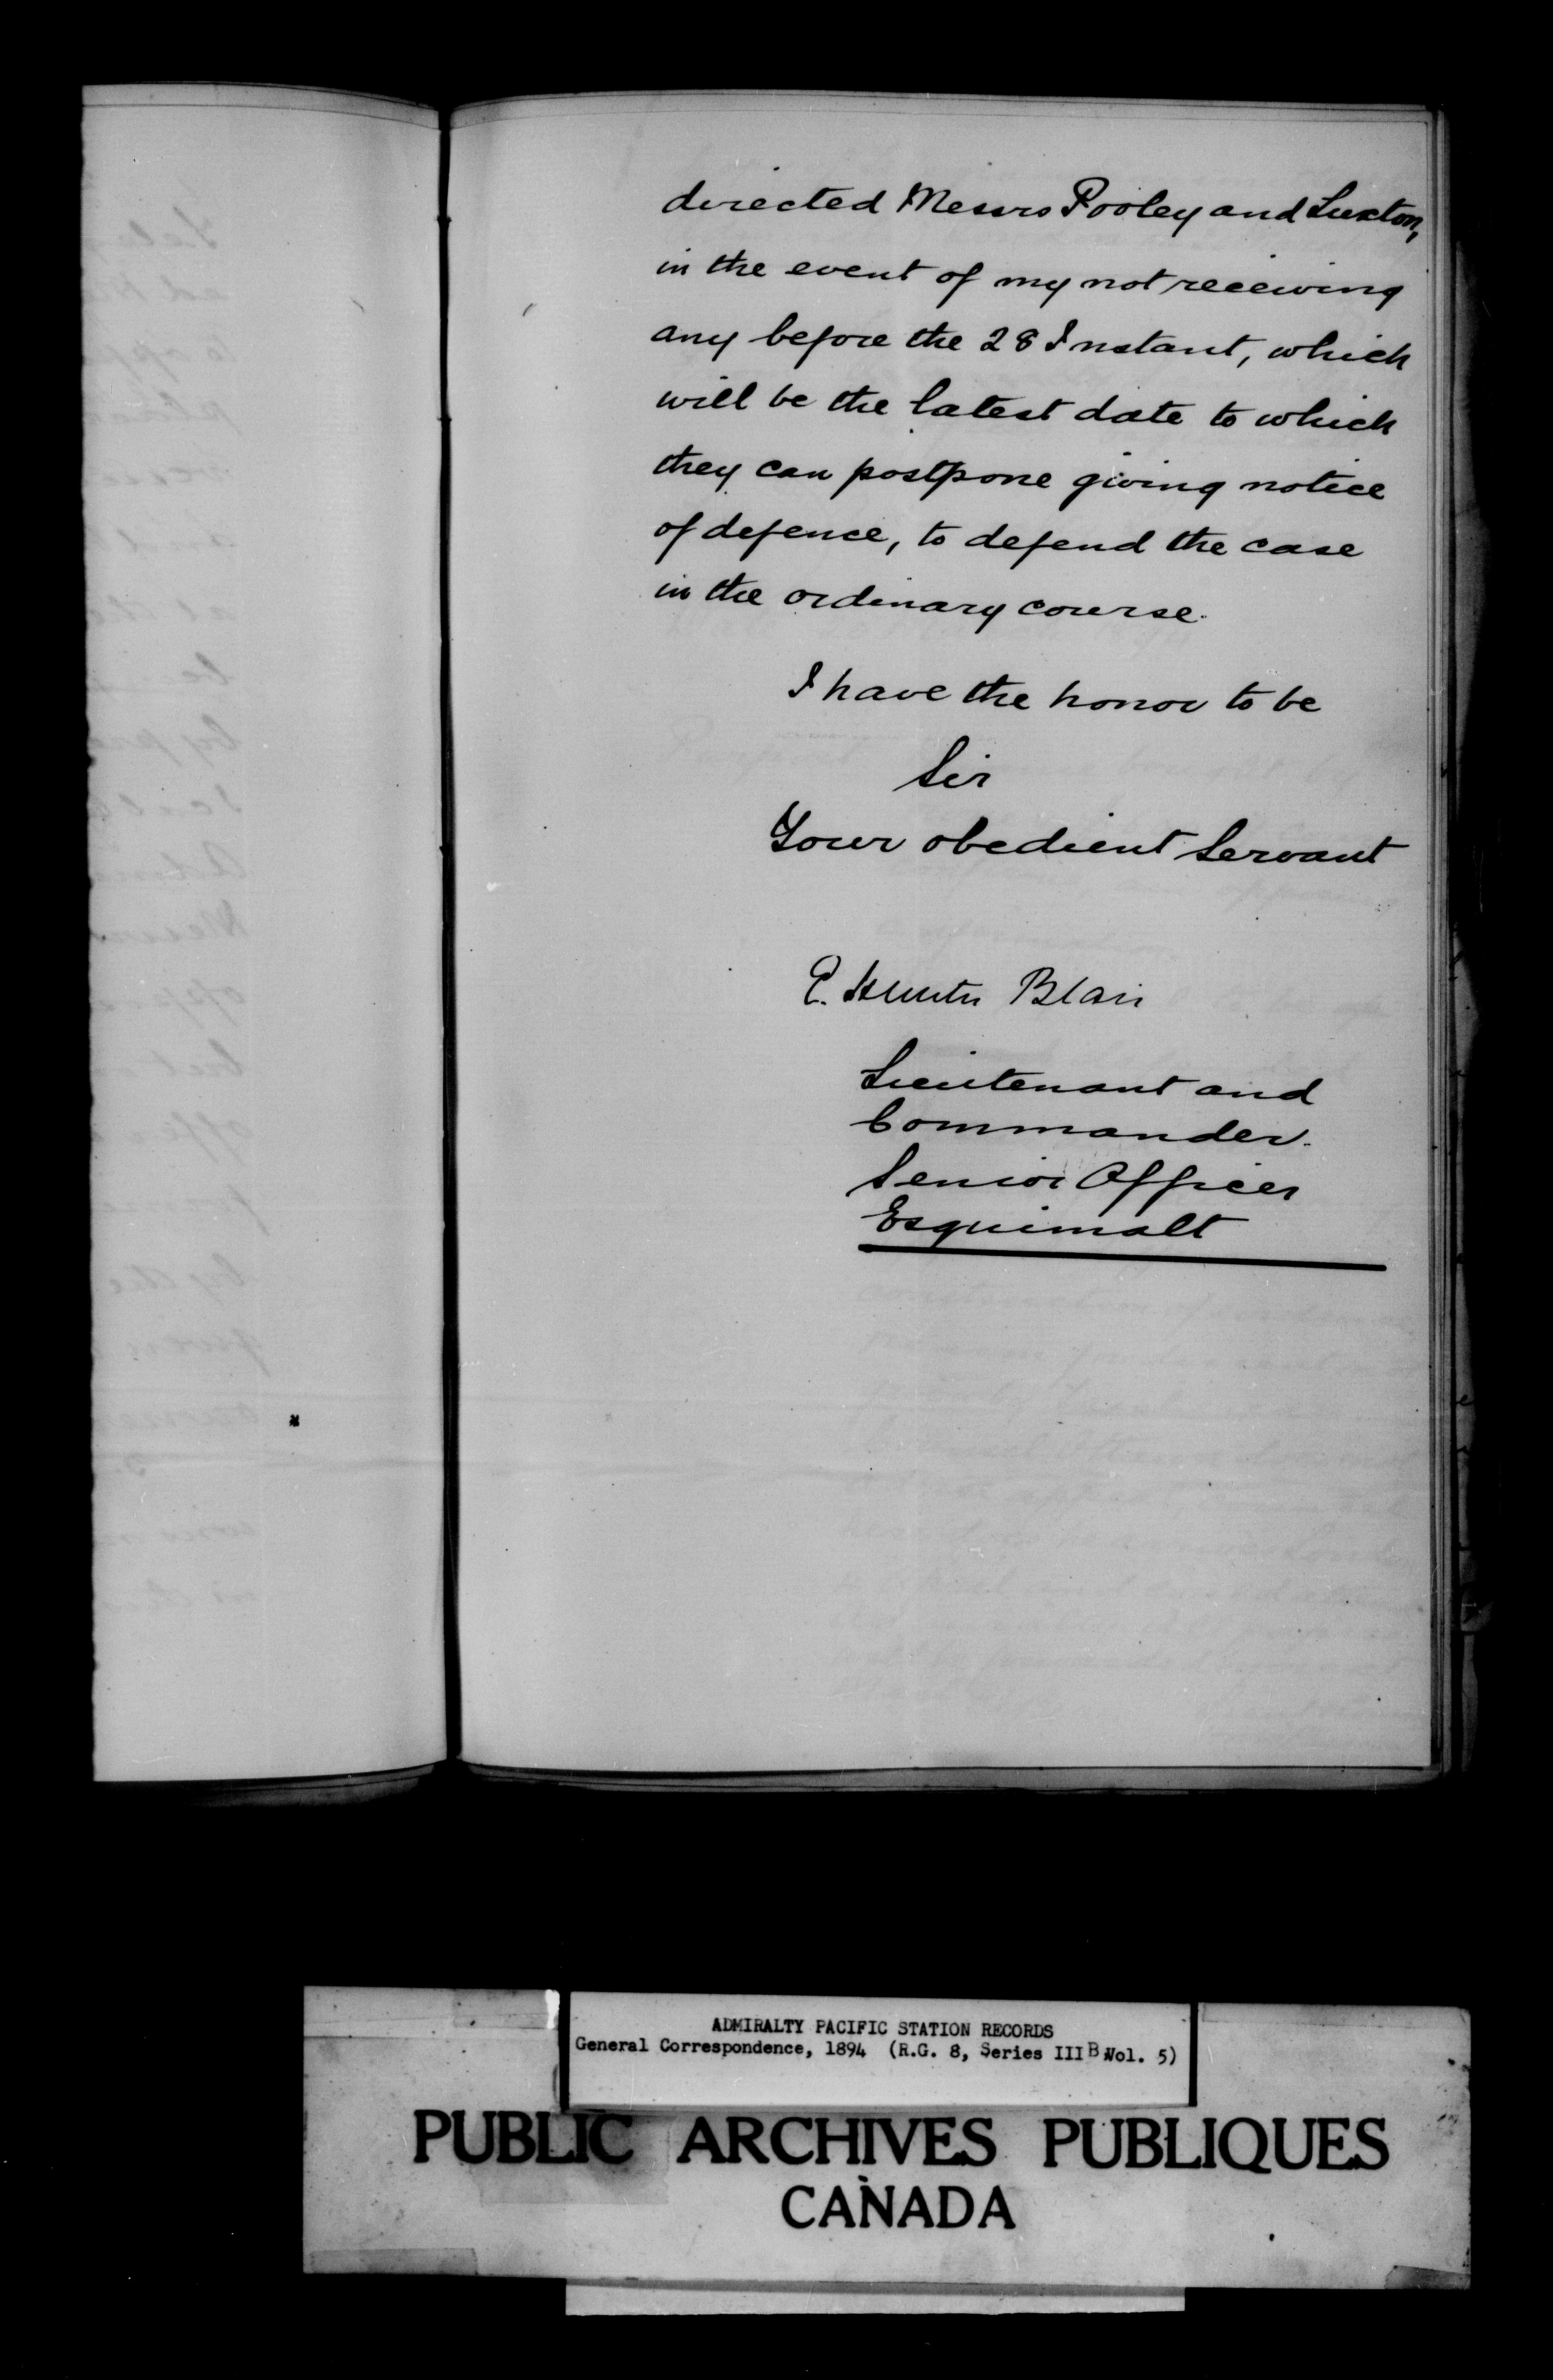 directed Messrs Pooley and Luxton,
in the event of my not receiving
any before the 28 Instant, which
will be the latest date to which
they can postpone giving notice
of defence, to defend the case
in the ordinary course.
I have the honor to be
Sir
Your obedient Servant
Hunter Blair
Lieutenant and
Commander.
Senior Officer
Esquimalt
ADMIRALTY PACIFIC STATION RECORDS
General Correspondence, 1894 (R.G. 8, Series III B Vol. 5)
PUBLIC ARCHIVES PUBLIQUES
CANADA